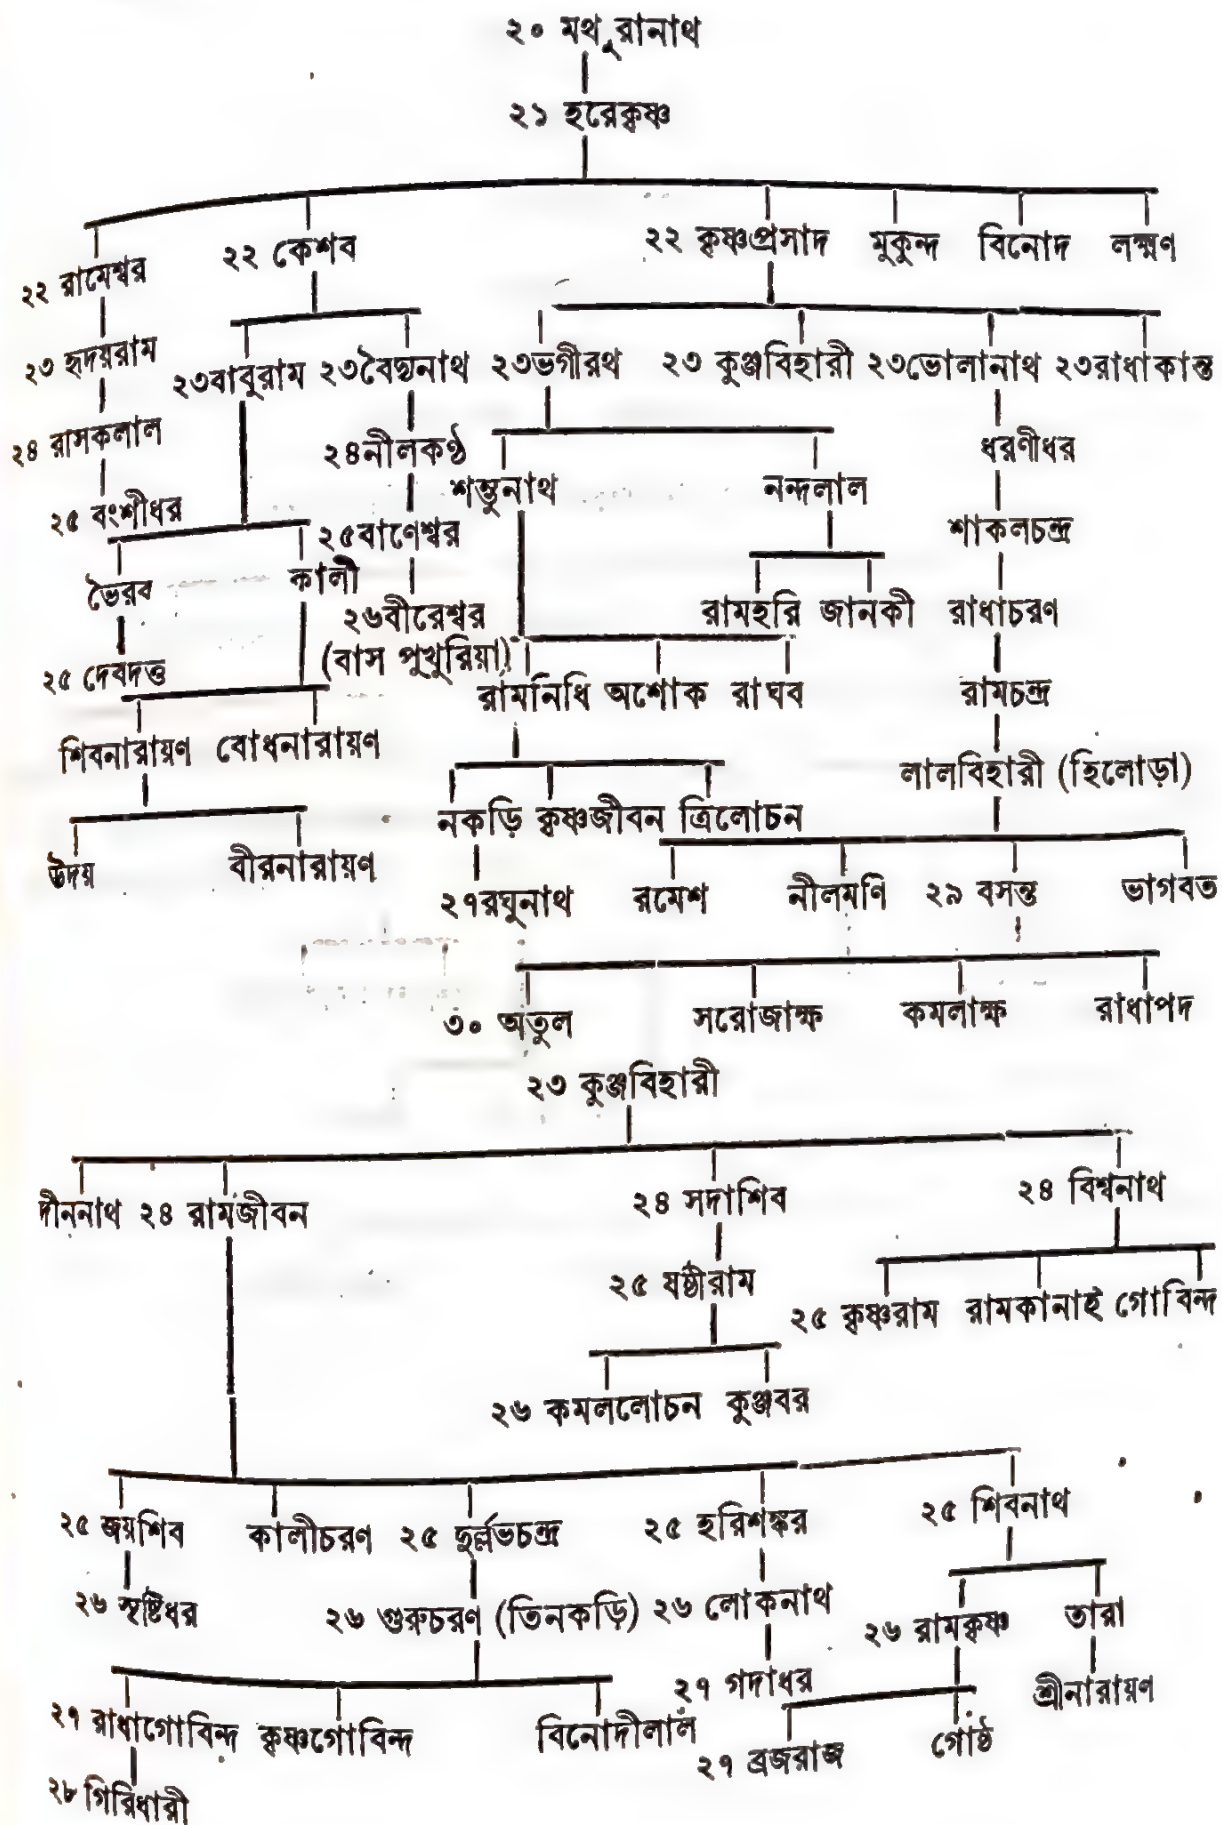 ২০ মথুরানাথ
২১ হরেকৃষ্ণ
২২ রামেশ্বর ২২ কেশব ২২ কৃষ্ণপ্রসাদ মুকুন্দ বিনোদ লক্ষ্মণ
২৩ হৃদয়রাম ২৩বাবুরাম ২৩বৈদ্যনাথ ২৩ভগীরথ ২৩ কুঞ্জবিহারী ২৩ভোলানাথ ২৩রাধাকান্ত
২৪ রাসকলাল ২৪নীলকণ্ঠ শম্ভুনাথ নন্দলাল ধরণীধর
২৫ বংশীধর ২৫বাণেশ্বর শাকলচন্দ্র
ভৈরব কালী ২৬বীরেশ্বর রামহরি জানকী রাধাচরণ
২৫ দেবদত্ত (বাস পুখুরিয়া) রামনিধি অশোক রাঘব রামচন্দ্র
শিবনারায়ণ বোধনারায়ণ লালবিহারী (হিলোড়া)
নকড়ি কৃষ্ণজীবন ত্রিলোচন
উদয় বীরনারায়ণ ২৭রঘুনাথ রমেশ নীলমণি ২৯ বসন্ত ভাগবত
৩০ অতুল সরোজাক্ষ কমলাক্ষ রাধাপদ
২৩ কুঞ্জবিহারী
দীননাথ ২৪ রামজীবন ২৪ সদাশিব ২৪ বিশ্বনাথ
২৫ ষষ্ঠীরাম ২৫ কৃষ্ণরাম রামকানাই গোবিন্দ
২৬ কমললোচন কুঞ্জবর
২৫ জয়শিব কালীচরণ ২৫ দুর্ল্লভচন্দ্র ২৫ হরিশঙ্কর ২৫ শিবনাথ
২৬ সৃষ্টিধর ২৬ গুরুচরণ (তিনকড়ি) ২৬ লোকনাথ ২৬ রামকৃষ্ণ তারা
২৭ রাধাগোবিন্দ কৃষ্ণগোবিন্দ বিনোদীলাল ২৭ গদাধর শ্রীনারায়ণ
২৭ ব্রজরাজ গোষ্ঠ
২৮ গিরিধারী